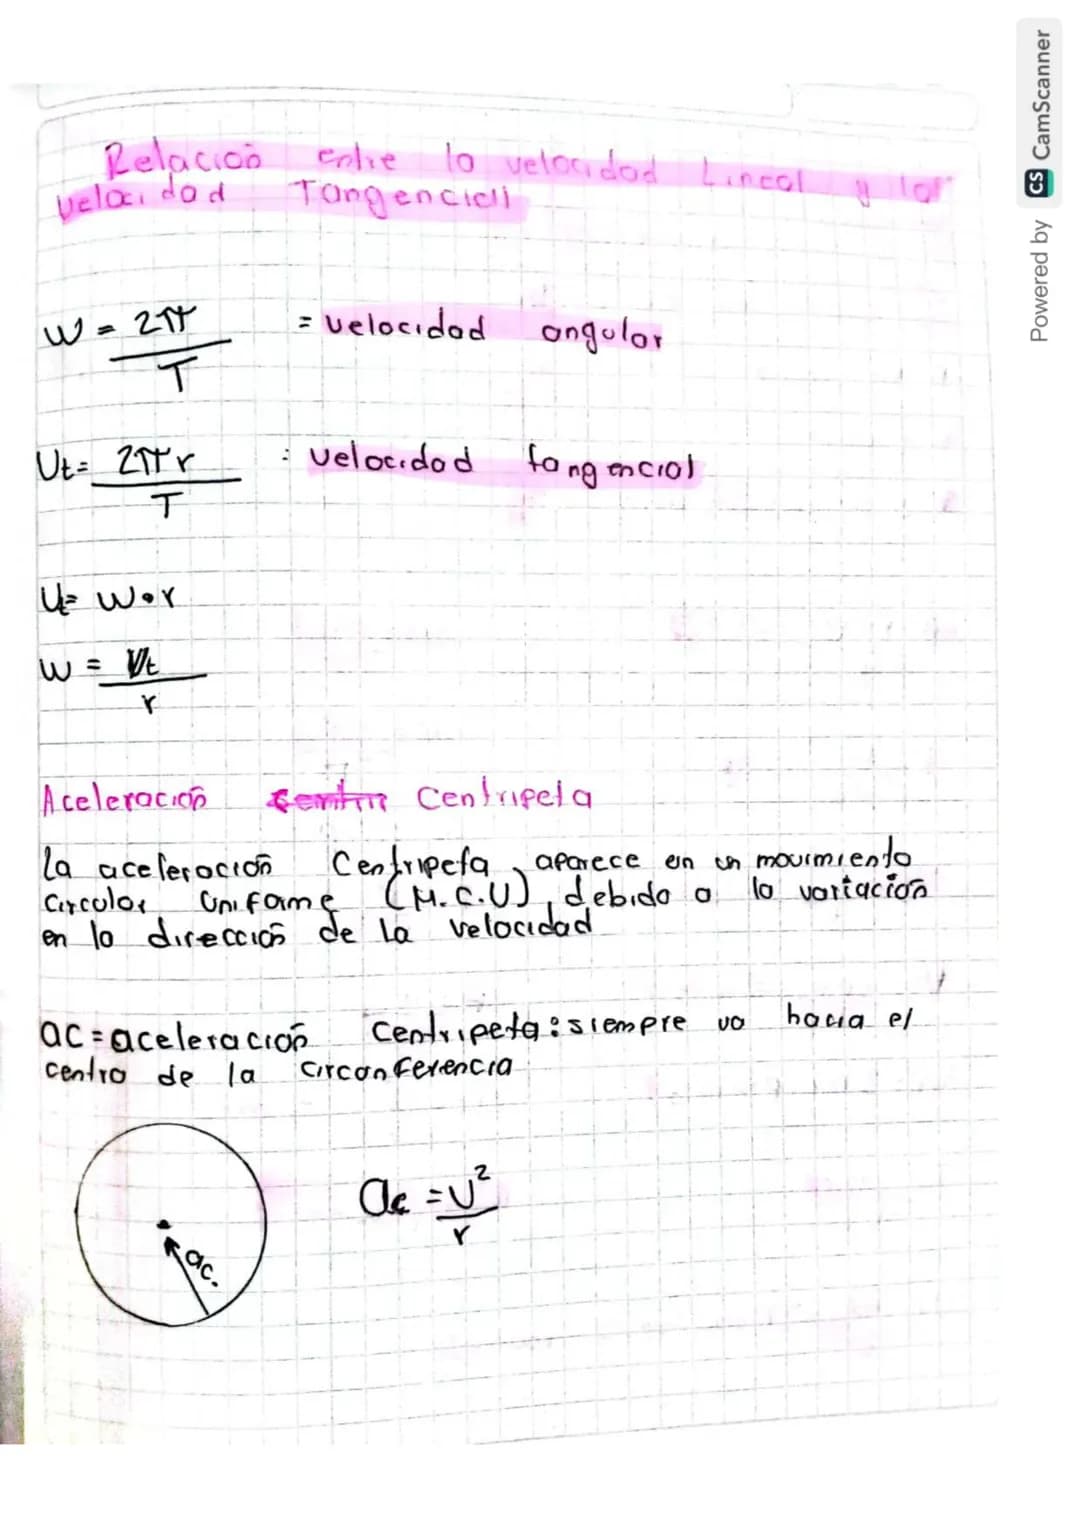 Relación entre la velocidad Lineal y la
velocidad Tangencial
W = 2π = velocidad angular
T
Vt = 2πr : velocidad tangencial
T
Vt = W•r
W = Vt
r
Aceleración Centripeta
La aceleración Centripeta, aparece en un movimiento
Circular Uniforme (M.C.U), debido a la variación
en la dirección de la velocidad
ac = aceleración Centripeta: siempre va hacia el
centro de la circonferencia
ac.
ac = v²
r
Powered by CS CamScanner